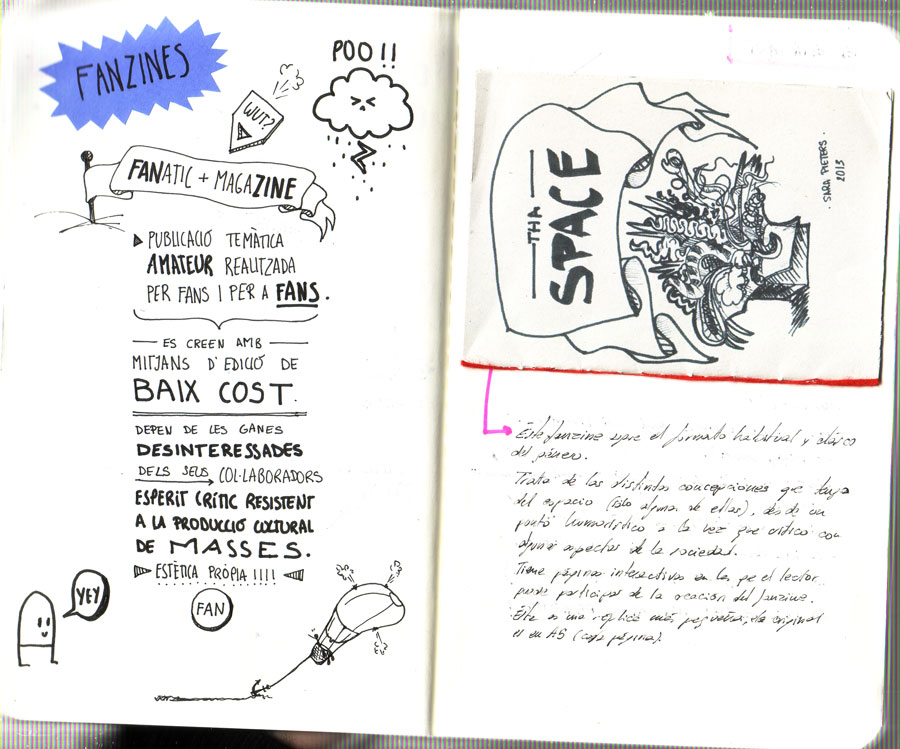 FANZINES
WUT?
POO!!
FANATIC + MAGAZINE
PUBLICACIÓ TEMÀTICA
AMATEUR REALITZADA
PER FANS I PER A FANS.
ES CREEN AMB
MITJANS D'EDICIÓ DE
BAIX COST.
DEPEN DE LES GANES
DESINTERESSADES
DELS SEUS COL·LABORADORS
ESPERIT CRÍTIC RESISTENT
A LA PRODUCCIÓ CULTURAL
DE MASSES.
ESTÈTICA PRÒPIA !!!!
FAN
YEY
THA
SPACE
SARA PIETERS.
2013
Este fanzine sigue el formato habitual y clásico
del género.
Trata de las distintas concepciones que tengo
del espacio (sólo alguna de ellas), desde un
punto humorístico a la vez que crítico con
algunos aspectos de la sociedad.
Tiene páginas interactivas en las que el lector
puede participar de la creación del fanzine.
Esta es una réplica más pequeña, la original
es en A5 (cada página).